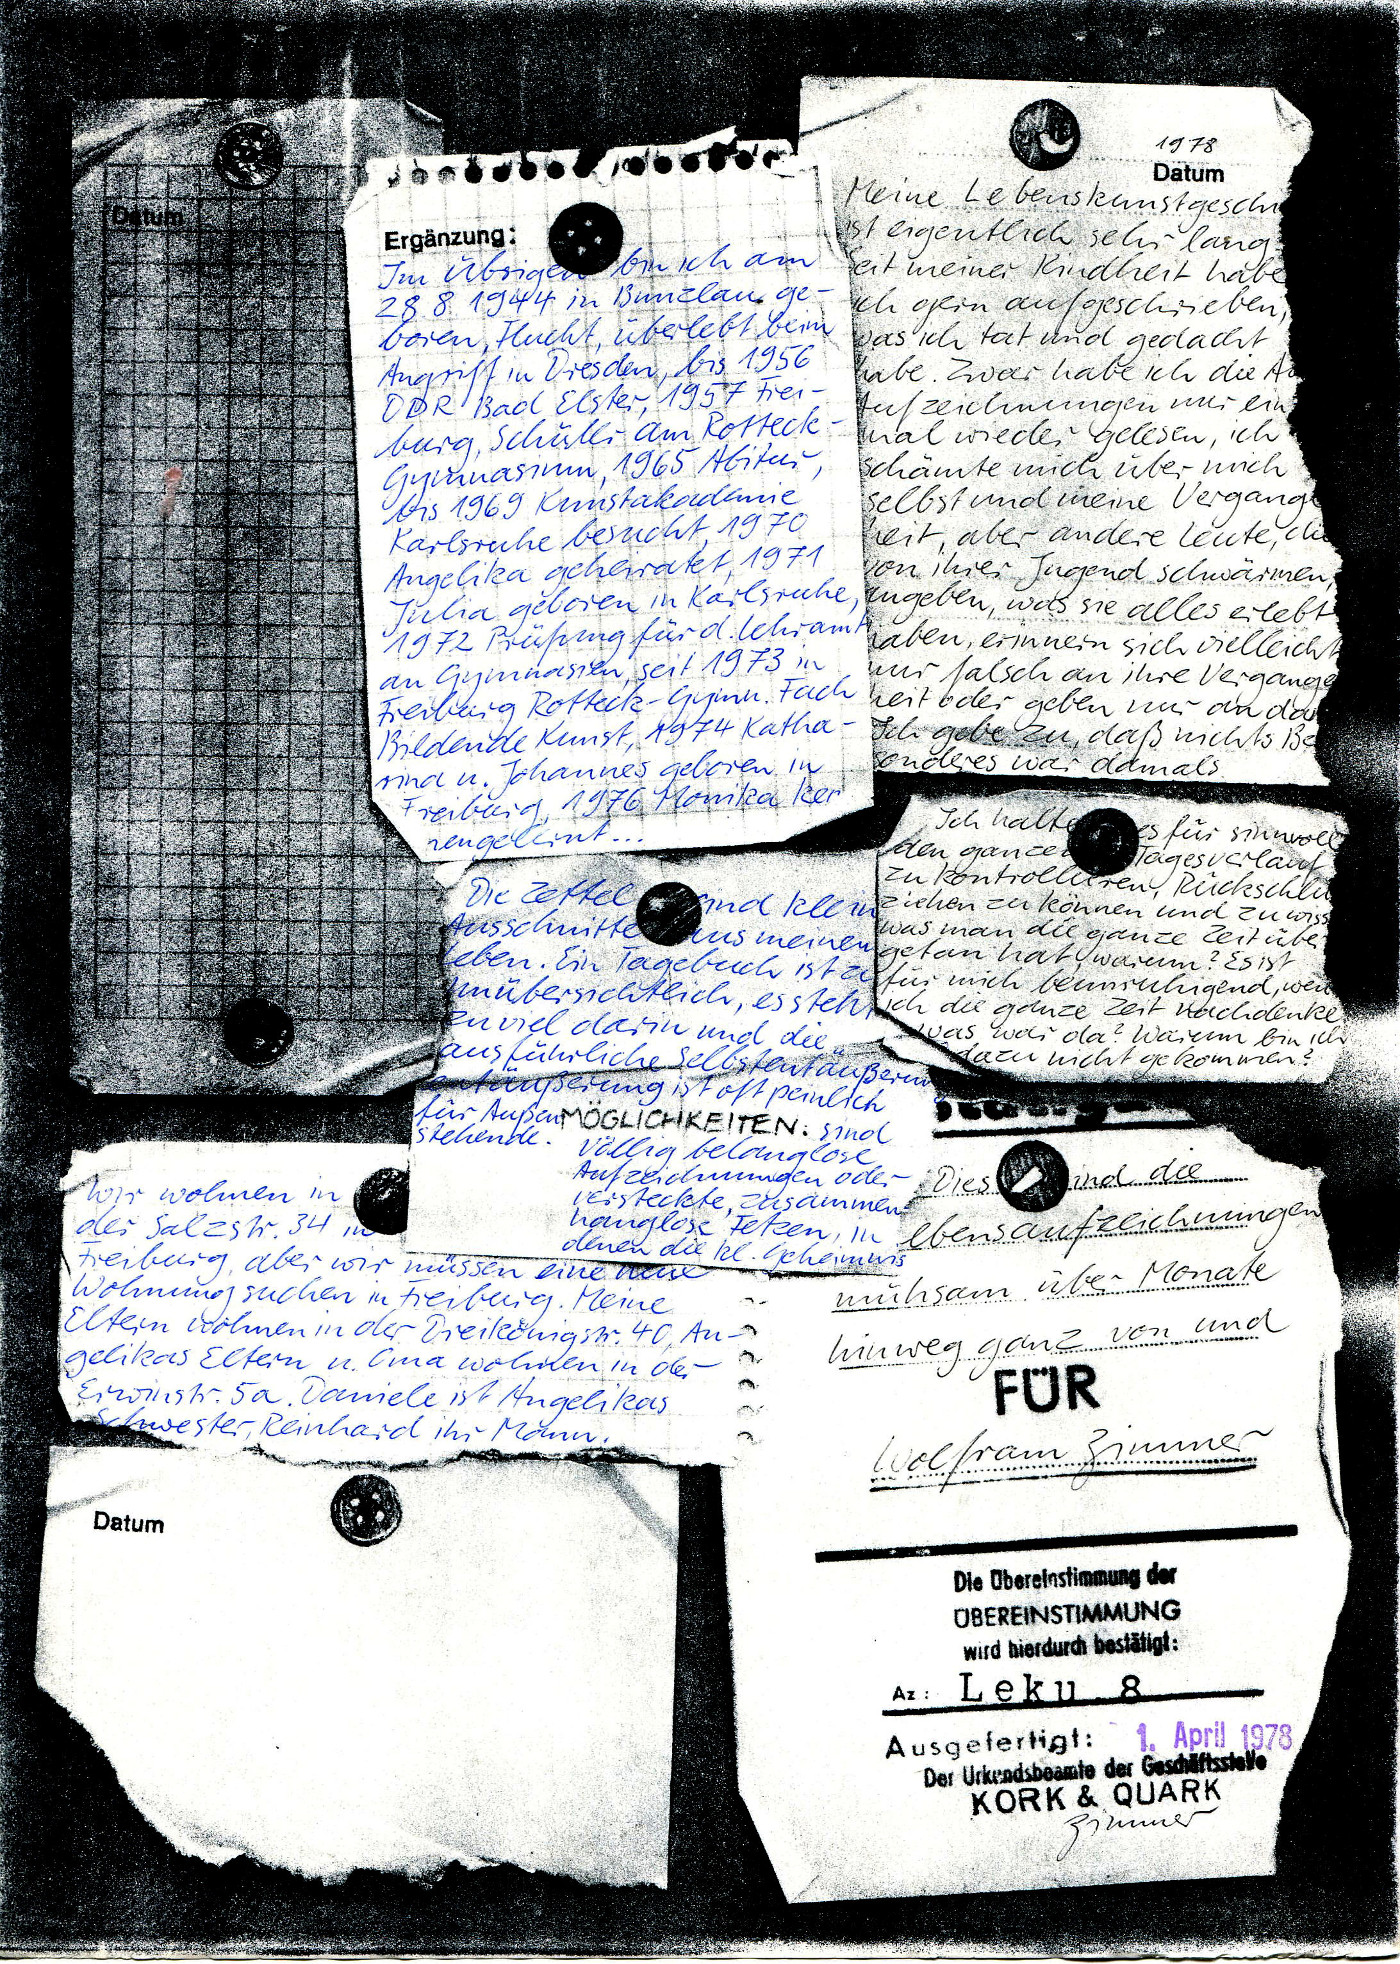 Datum
Ergänzung:
Im Übrigen bin ich am
28 8 1944 in Bunzlau ge-
boren, Flucht, überlebt beim
Angriff in Dresden, bis 1956
DDR Bad Elster, 1957 Frei-
burg, Schüler am Rotteck-
Gymnasium, 1965 Abitur,
bis 1969 Kunstakademie
Karlsruhe besucht, 1970
Angelika geheiratet, 1971
Julia geboren in Karlsruhe,
1972 Prüfung für d. Lehramt
an Gymnasien, seit 1973 in
Freiburg Rotteck-Gymn. Fach
Bildende Kunst, 1974 Katha-
rina u. Johannes geboren in
Freiburg, 1976 Monika ken
nengelernt...
1978
Datum
Meine Lebenskunstgeschi
ist eigentlich sehr lang
seit meiner Kindheit habe
ich gern aufgeschrieben,
was ich tat und gedacht
habe. Zwar habe ich die A
Aufzeichnungen nur ein
mal wieder gelesen, ich
schämte mich über mich
selbst und meine Vergange
heit, aber andere Leute, die
von ihrer Jugend schwärmen,
angeben, was sie alles erlebt
haben, erinnern sich vielleicht
nur falsch an ihre Vergange
heit oder geben nur an da
Ich gebe zu, daß nichts Be
sonderes war damals
Ich halte es für sinnvoll
den ganzen Tagesverlauf
zu kontrollieren, Rückschlü
ziehen zu können und zu wiss
was man die ganze Zeit übe
getan hat, warum? Es ist
für mich beunruhigend, wen
ich die ganze Zeit nachdenke
was war da? Warum bin ich
dazu nicht gekommen?
Die Zettel sind klein
Ausschnitte aus meinem
Leben. Ein Tagebuch ist zu
unübersichtlich, es steht
zu viel darin und die
ausführliche Selbstentäußerun
entäußerung ist oft peinlich
für Außen
stehende.
MÖGLICHKEITEN: sind
völlig belanglose
Aufzeichnungen oder
versteckte, zusammen-
hanglose Fetzen, in
denen die kl. Geheimnis
Wir wohnen in
der Salzstr. 34 in
Freiburg, aber wir müssen eine neue
Wohnung suchen in Freiburg. Meine
Eltern wohnen in der Dreikönigstr. 40, An-
gelikas Eltern u. Oma wohnen in der
Erwinstr. 5a. Daniele ist Angelikas
Schwester, Reinhard ihr Mann.
Datum
Dies sind die
ebensaufzeichnungen
mühsam über Monate
hinweg ganz von und
FÜR
Wolfram Zimmer
Die Übereinstimmung der
ÜBEREINSTIMMUNG
wird hierdurch bestätigt:
Az: Leku 8
Ausgefertigt: 1. April 1978
Der Urkundsbeamte der Geschäftsstelle
KORK & QUARK
Zimmer